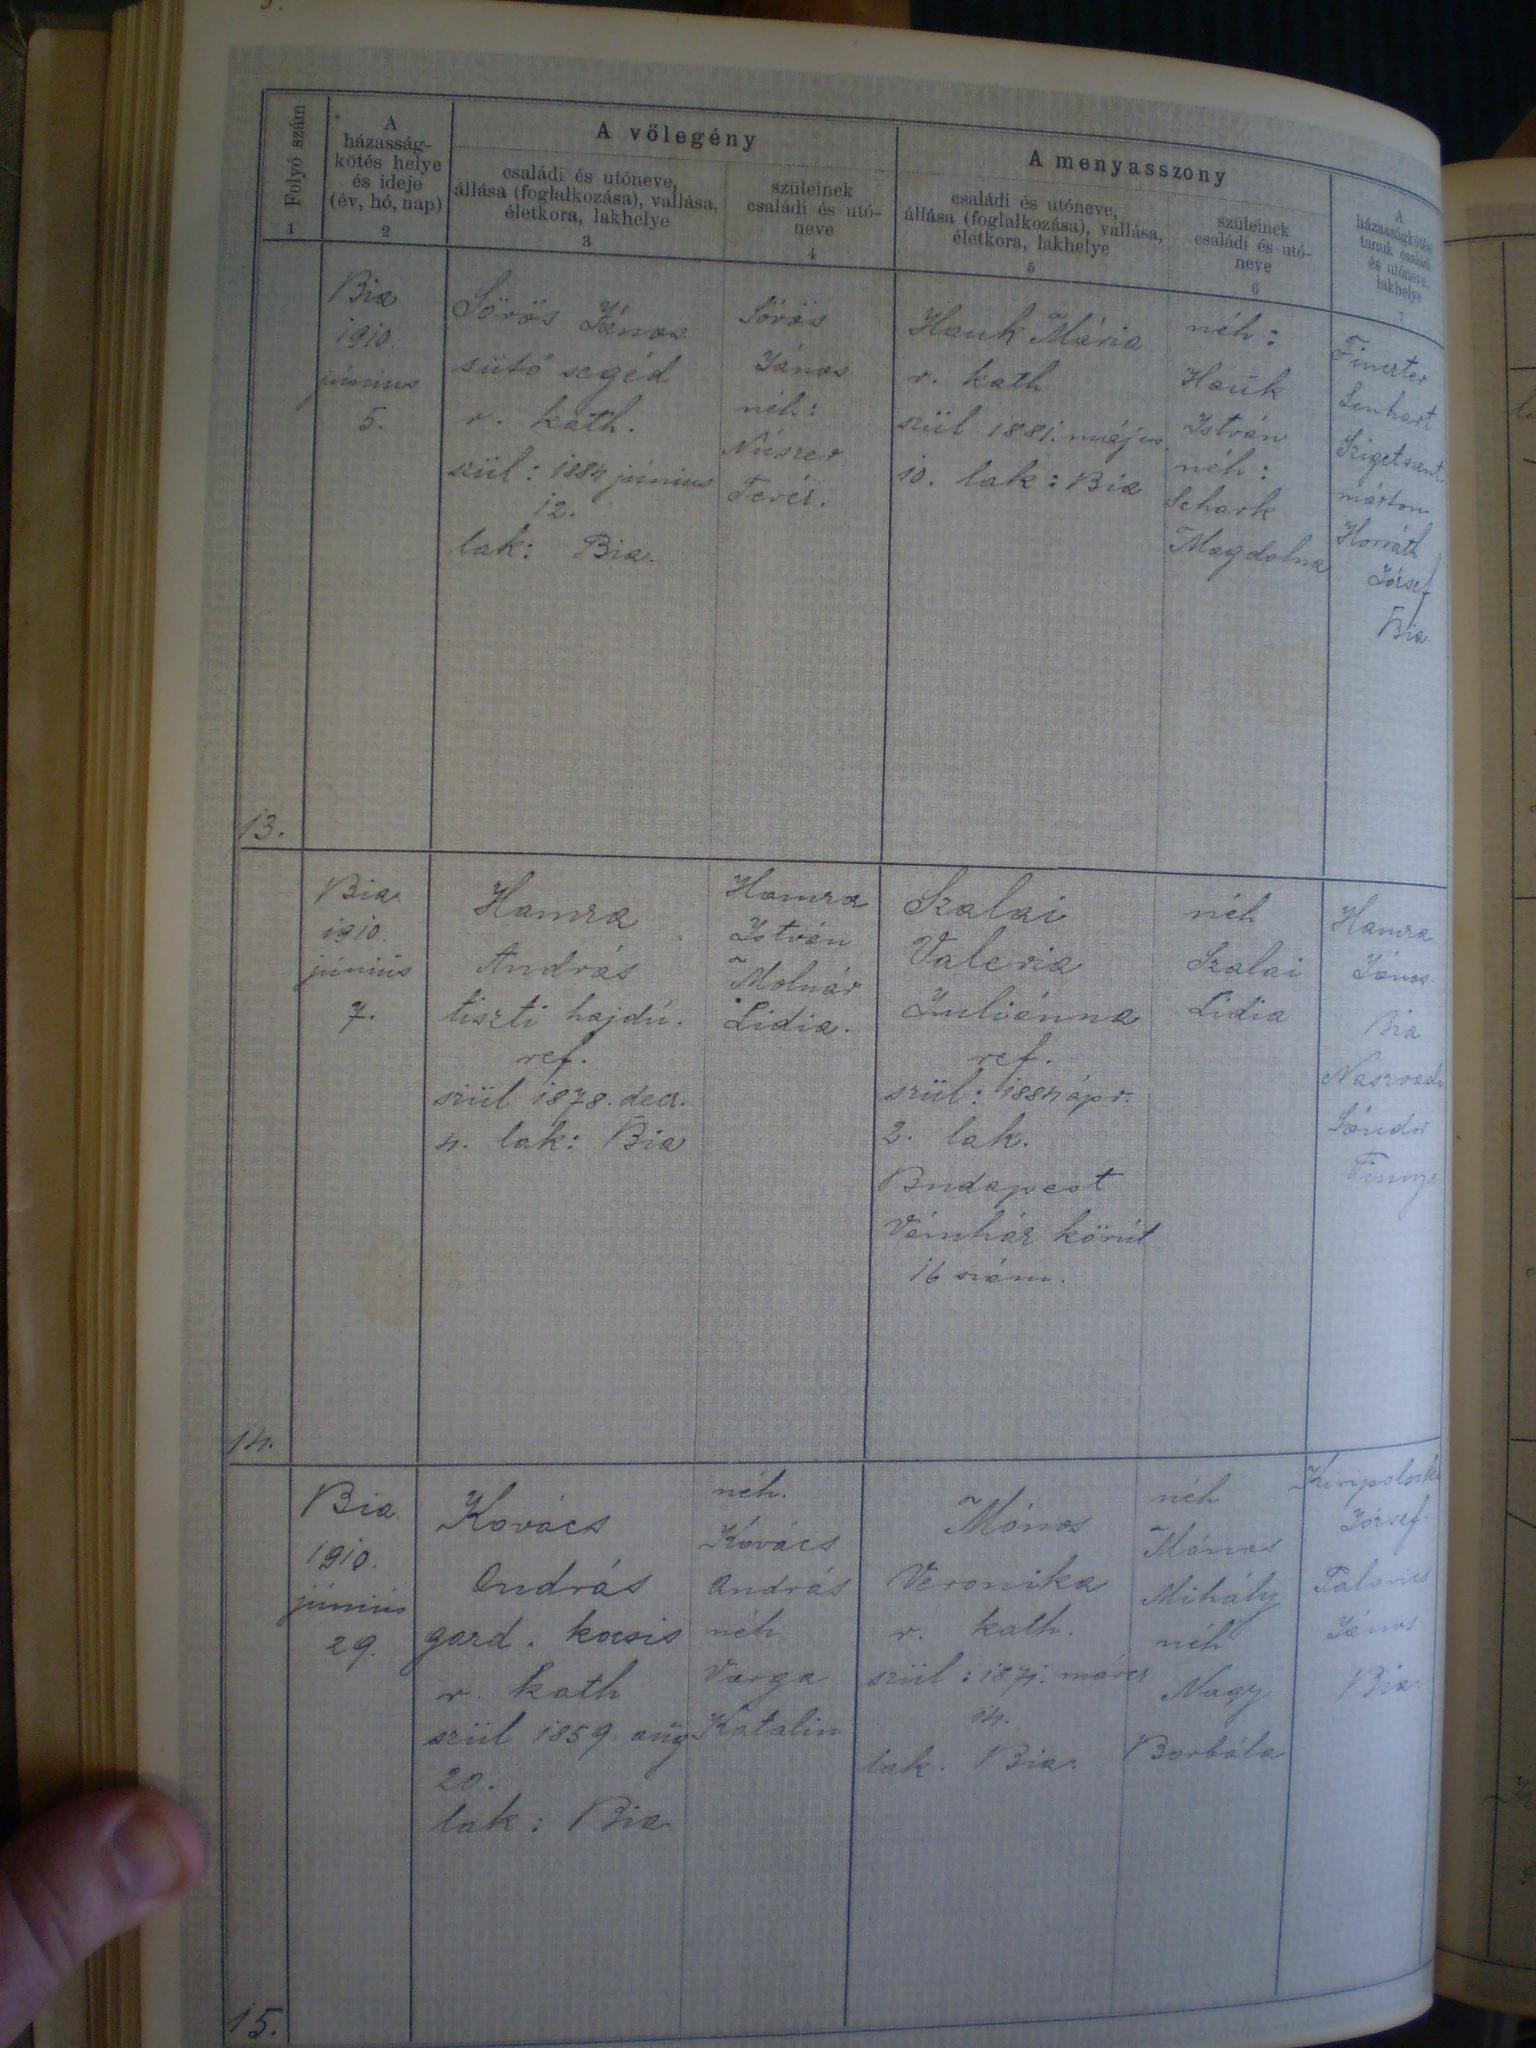 Folyó szám
1
A
házasság-
kötés helye
és ideje
(év, hó, nap)
2
A vőlegény
családi és utóneve,
állása (foglalkozása), vallása,
életkora, lakhelye
3
szüleinek
családi és utó-
neve
4
A menyasszony
családi és utóneve,
állása (foglalkozása), vallása,
életkora, lakhelye
5
szüleinek
családi és utó-
neve
6
A
házasságkötési
tanuk családi
és utóneve,
lakhelye
7
13.
Bia
1910.
június
5.
Sörös János
sütő segéd
r. kath.
szül: 1884 június
12.
lak: Bia.
Sörös
János
néh:
Teréz.
Hauk Mária
r. kath
szül 1881. május
10. lak: Bia
néh:
Hauk
István
néh:
Schark
Magdolna
Lenhart
Szigetszent-
márton
Horváth
József
Bia.
14.
Bia.
1910.
június
7.
Hamza
András
tiszti hajdú.
ref.
szül 1878. dec.
4. lak: Bia
Hamza
István
Molnár
Lidia.
Szalai
Valeria
Juliánna
ref.
szül: 1884 ápr.
2. lak.
Budapest
Vámház körút
16 szám.
néh
Szalai
Lidia
Hamza
János
Bia
Sándor
15.
Bia.
1910.
június
29.
Kovács
András
gazd. kocsis
r. kath
szül 1859. aug
20.
lak: Bia
néh.
Kovács
András
néh
Varga
Katalin
Mónos
Veronika
r. kath.
szül: 1871. márcz
14.
lak. Bia.
néh
Mónos
Mihály
néh
Nagy
Borbála
József.
Palovics
János
Bia.